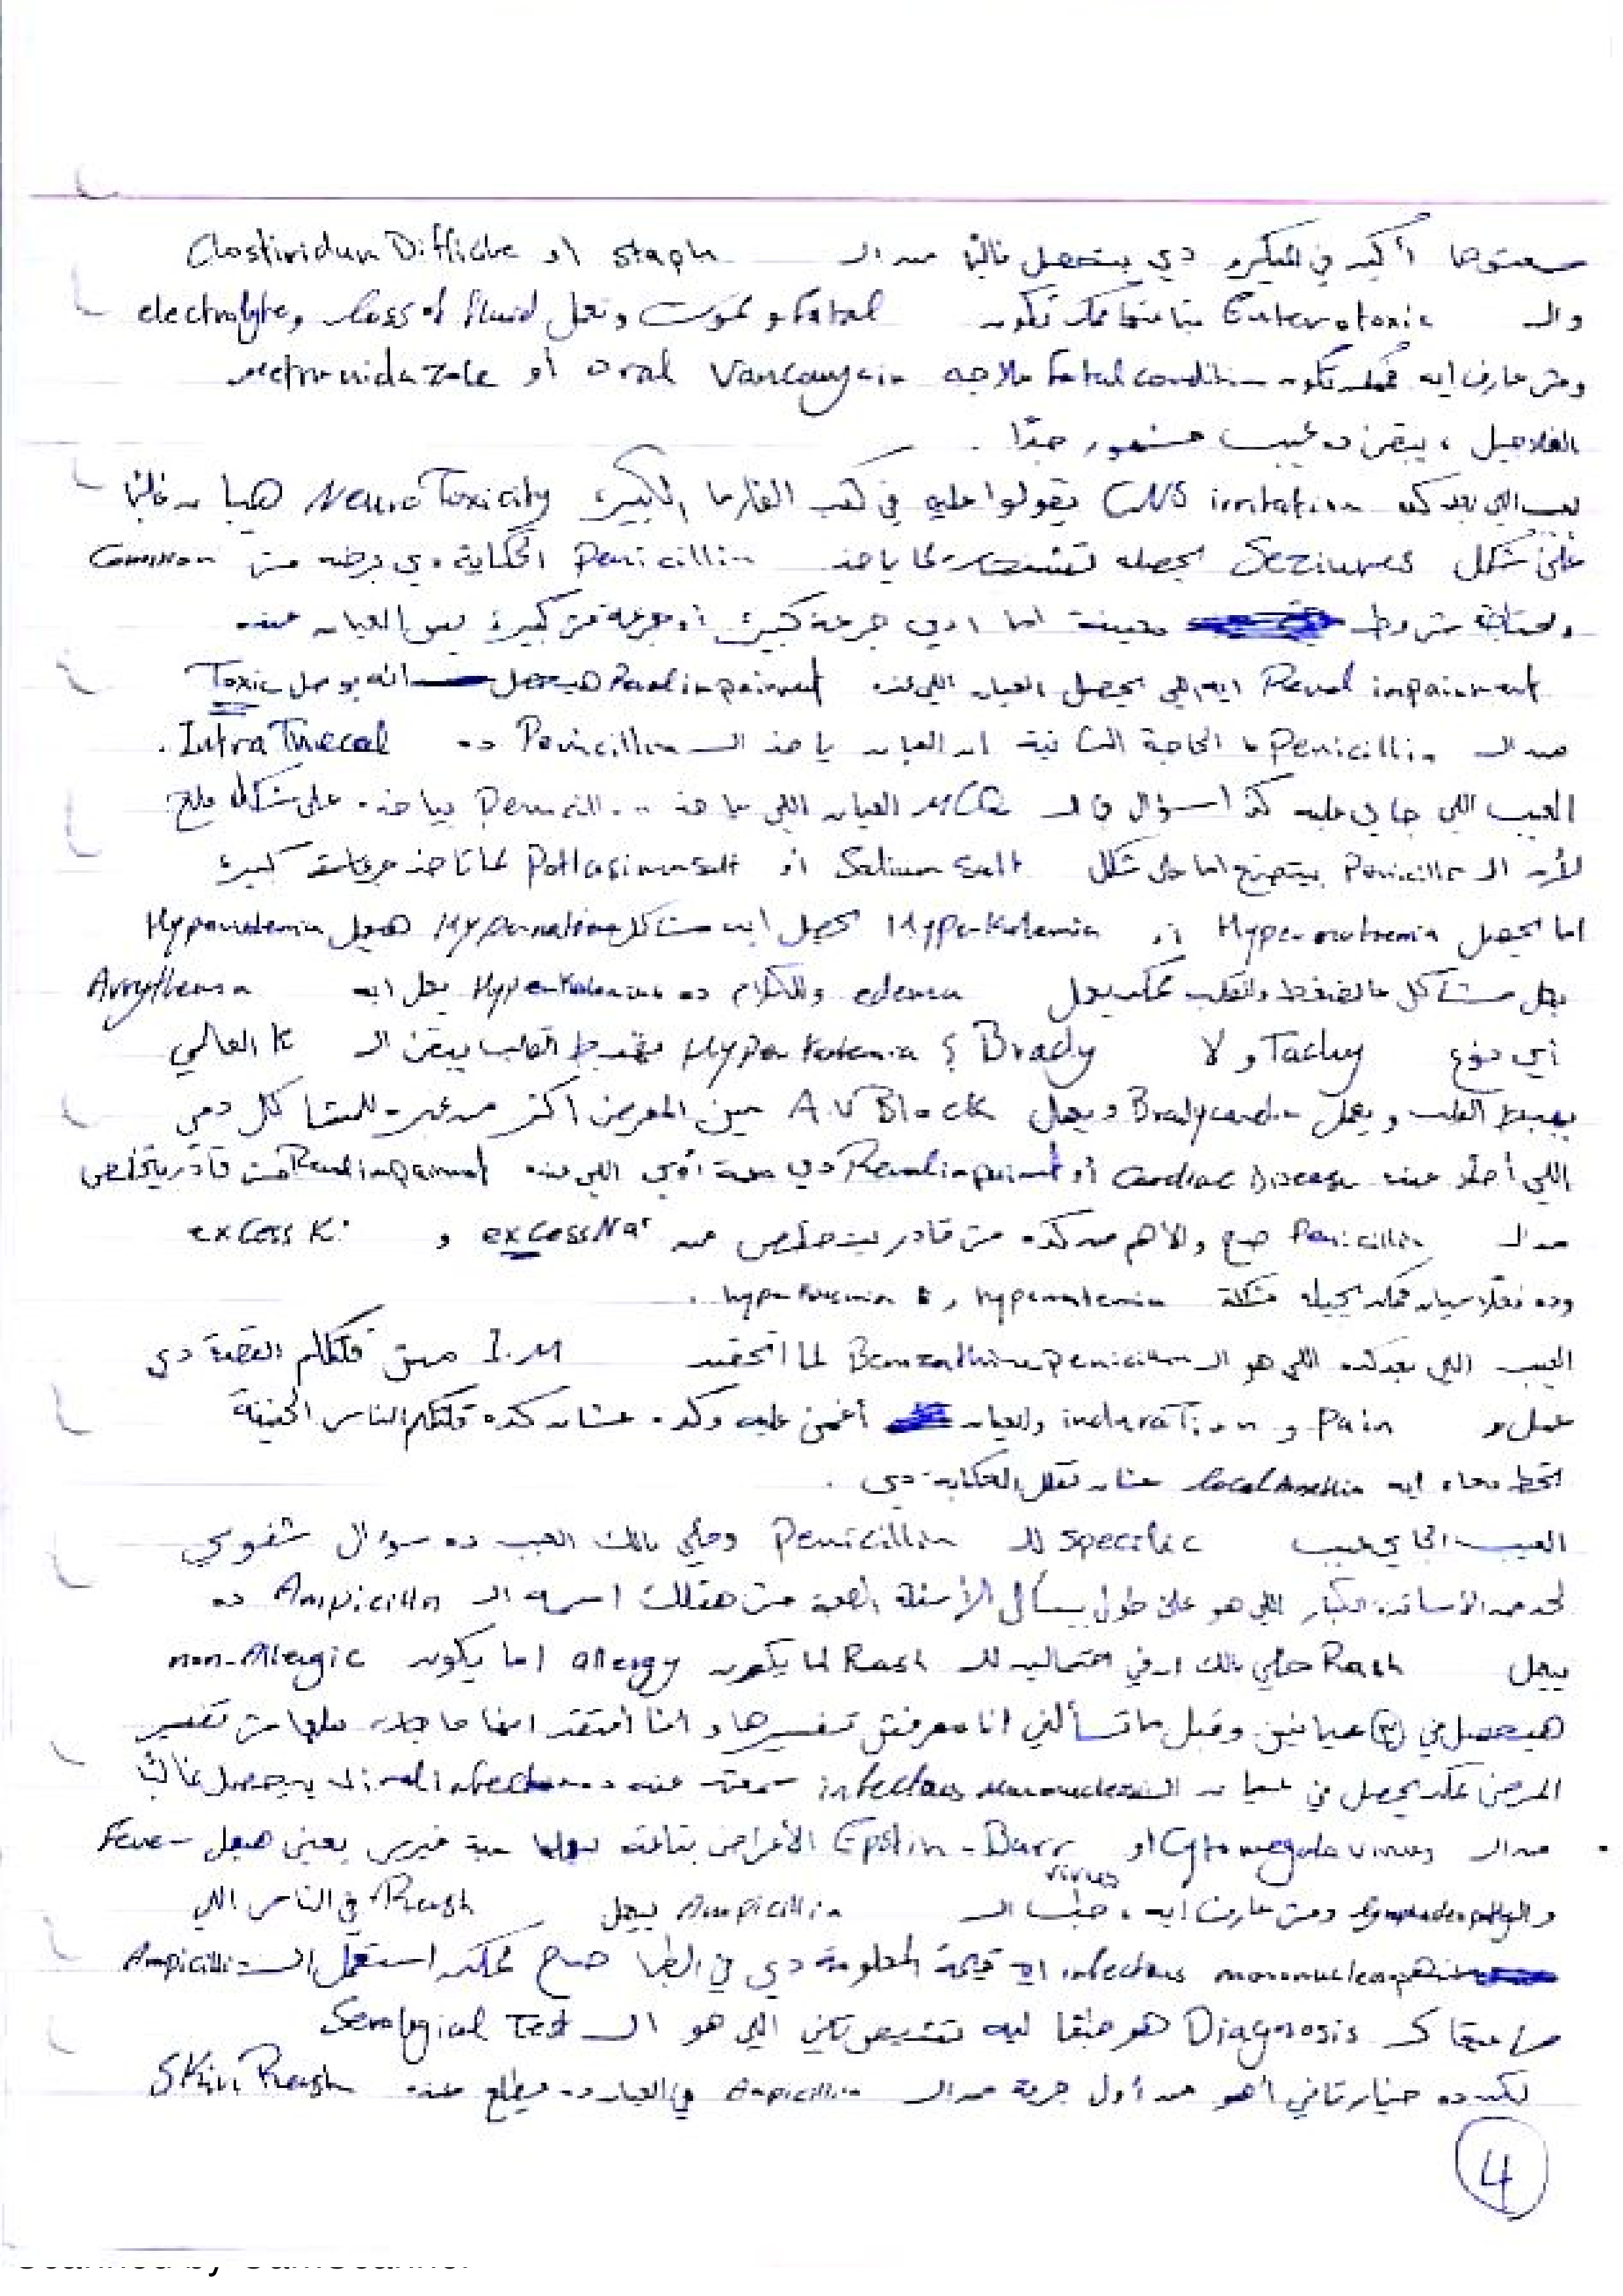 سمعتوها أكيد في الميكرو دي بتحصل غالبًا من الـ staph او Clostiridum Difficile
والـ Enterotoxic بتاعتها ممكن تكون Fatal و تموت وتعمل loss of fluid و electrolyte
ومش عارف ايه ممكن تكون Fatal condition علاجه oral Vancomycin أو metronidazole
التفاصيل ، يبقى ده عيب مشهور جدًا .
العيب اللي بعد كده CNS irritation يقولوا عليه في كتب الفارما الكبيرة Neuro Toxicity العيان غالبًا
على شكل Seziures يحصله تشنجات لما ياخد Penicillin الحكاية دي برضه مش Common
ومحتاجة شروط معينة اما ادي جرعة كبيرة أو جرعة مش كبيرة بس العيان عنده
Renal impairment ايه اللي يحصل العيان اللي عنده Renal impairment هيحصل انه يوصل Toxic
من الـ Penicillin الحاجة التانية ان العيان ياخد الـ Penicillin ده IntraThecal .
العيب اللي جاي عليه كذا سؤال في الـ MCQ العيان اللي ياخد .. الـ Penicillin بياخده على شكل ملح
لأن الـ Penicillin بيتصنع اما على شكل Sodium salt أو Pottasium salt لما تاخد جرعات كبيرة
اما يحصل Hypernatremia أو Hyperkalemia يحصل ايه مشاكل Hypernatremia هيعمل Hypernatremia
يعمل مشاكل عالضغط والقلب ممكن يعمل edema والكلام ده Hyperkalemia يعمل ايه Arrythemia
أي نوع Tachy ولا Brady ؟ Hyper Kalemia بتهبط القلب يبقى الـ K العالي
يهبط القلب و يعمل Bradycardia ويعمل A.V Block مين المعرض اكتر من غيره للمشاكل دي
اللي أصلًا عنده Cardiac Disease أو Renal impairment دي مهمة أوي اللي عنده Renal impairment مش قادر يتخلص
من الـ Penicillin صح والأهم من كده مش قادر يتخلص من excess Na⁺ و excess K⁺
وده فعلًا عيان ممكن يجيله مشكلة hypernatremia و hyperkalemia ..
العيب اللي بعد كده اللي هو الـ Benzathine penicillin لما اتحقنت I.M مش قلتلكم القصة دي
عمل Pain و induration والعيان أغمى عليه وكده عشان كده قلتلكم الناس الحنينة
تحط معاه ايه local Anesthia عشان تقلل الحكاية دي .
العيب الجاي عيب specific للـ Penicillin وخلي بالك العيب ده سؤال شفوي
لحد من الأساتذة الكبار اللي هو على طول بيسأل الأسئلة الصعبة مش هقلك اسمه الـ Ampicillin ده
بيعمل Rash خلي بالك ان في احتمالين للـ Rash اما يكون allergy اما يكون non-Allergic
هيحصل في ② عيانين وقبل ما تسألني انا معرفش تفسيرها و انا أعتقد انها حاجة ملهاش تفسير
المرض ممكن يحصل في عيان الـ infectous mononucleosis سمعت عنه ده viral infection بيحصل غالبًا
من الـ Cytomegalo virus أو Epstin - Barr virus الأعراض بتاعته كلها شبه فيرس يعني هيعمل Fever
والـ lymphadenopathy ومش عارف ايه ، طب الـ Ampicillin بيعمل Rash في الناس اللي
infectous mononucleosis ايه قيمة المعلومة دي في الطب صح ممكن استعمل الـ Ampicillin
Diagnosis هو طبعًا ليه تشخيص تاني اللي هو الـ Serological Test
لكن ده خيار تاني أهو من أول جرعة من الـ Ampicillin في العيان ده هيطلع عنده Skin Rash
4
Scanned by CamScanner